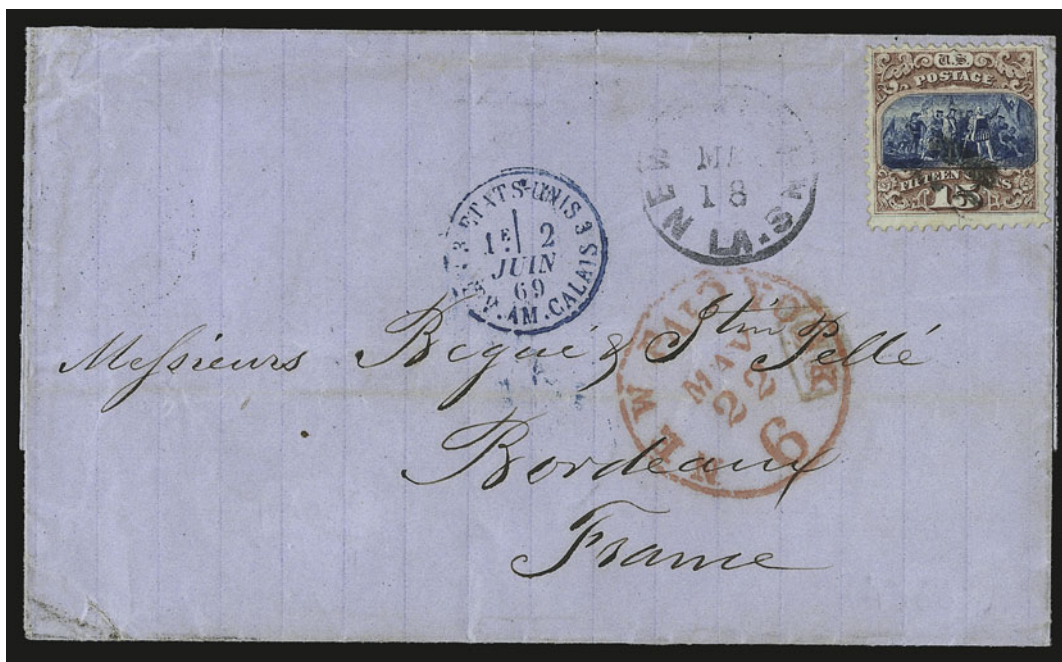 U.S.
POSTAGE
FIFTEEN CENTS
15
NEW
LA.
MAY
18
3 ETATS-UNIS 3
1E 2
JUIN
69
AM. CALAIS
NEW PAID YORK
MAY
22
6
Messieurs Begué & Stin Pellé
Bordeaux
France